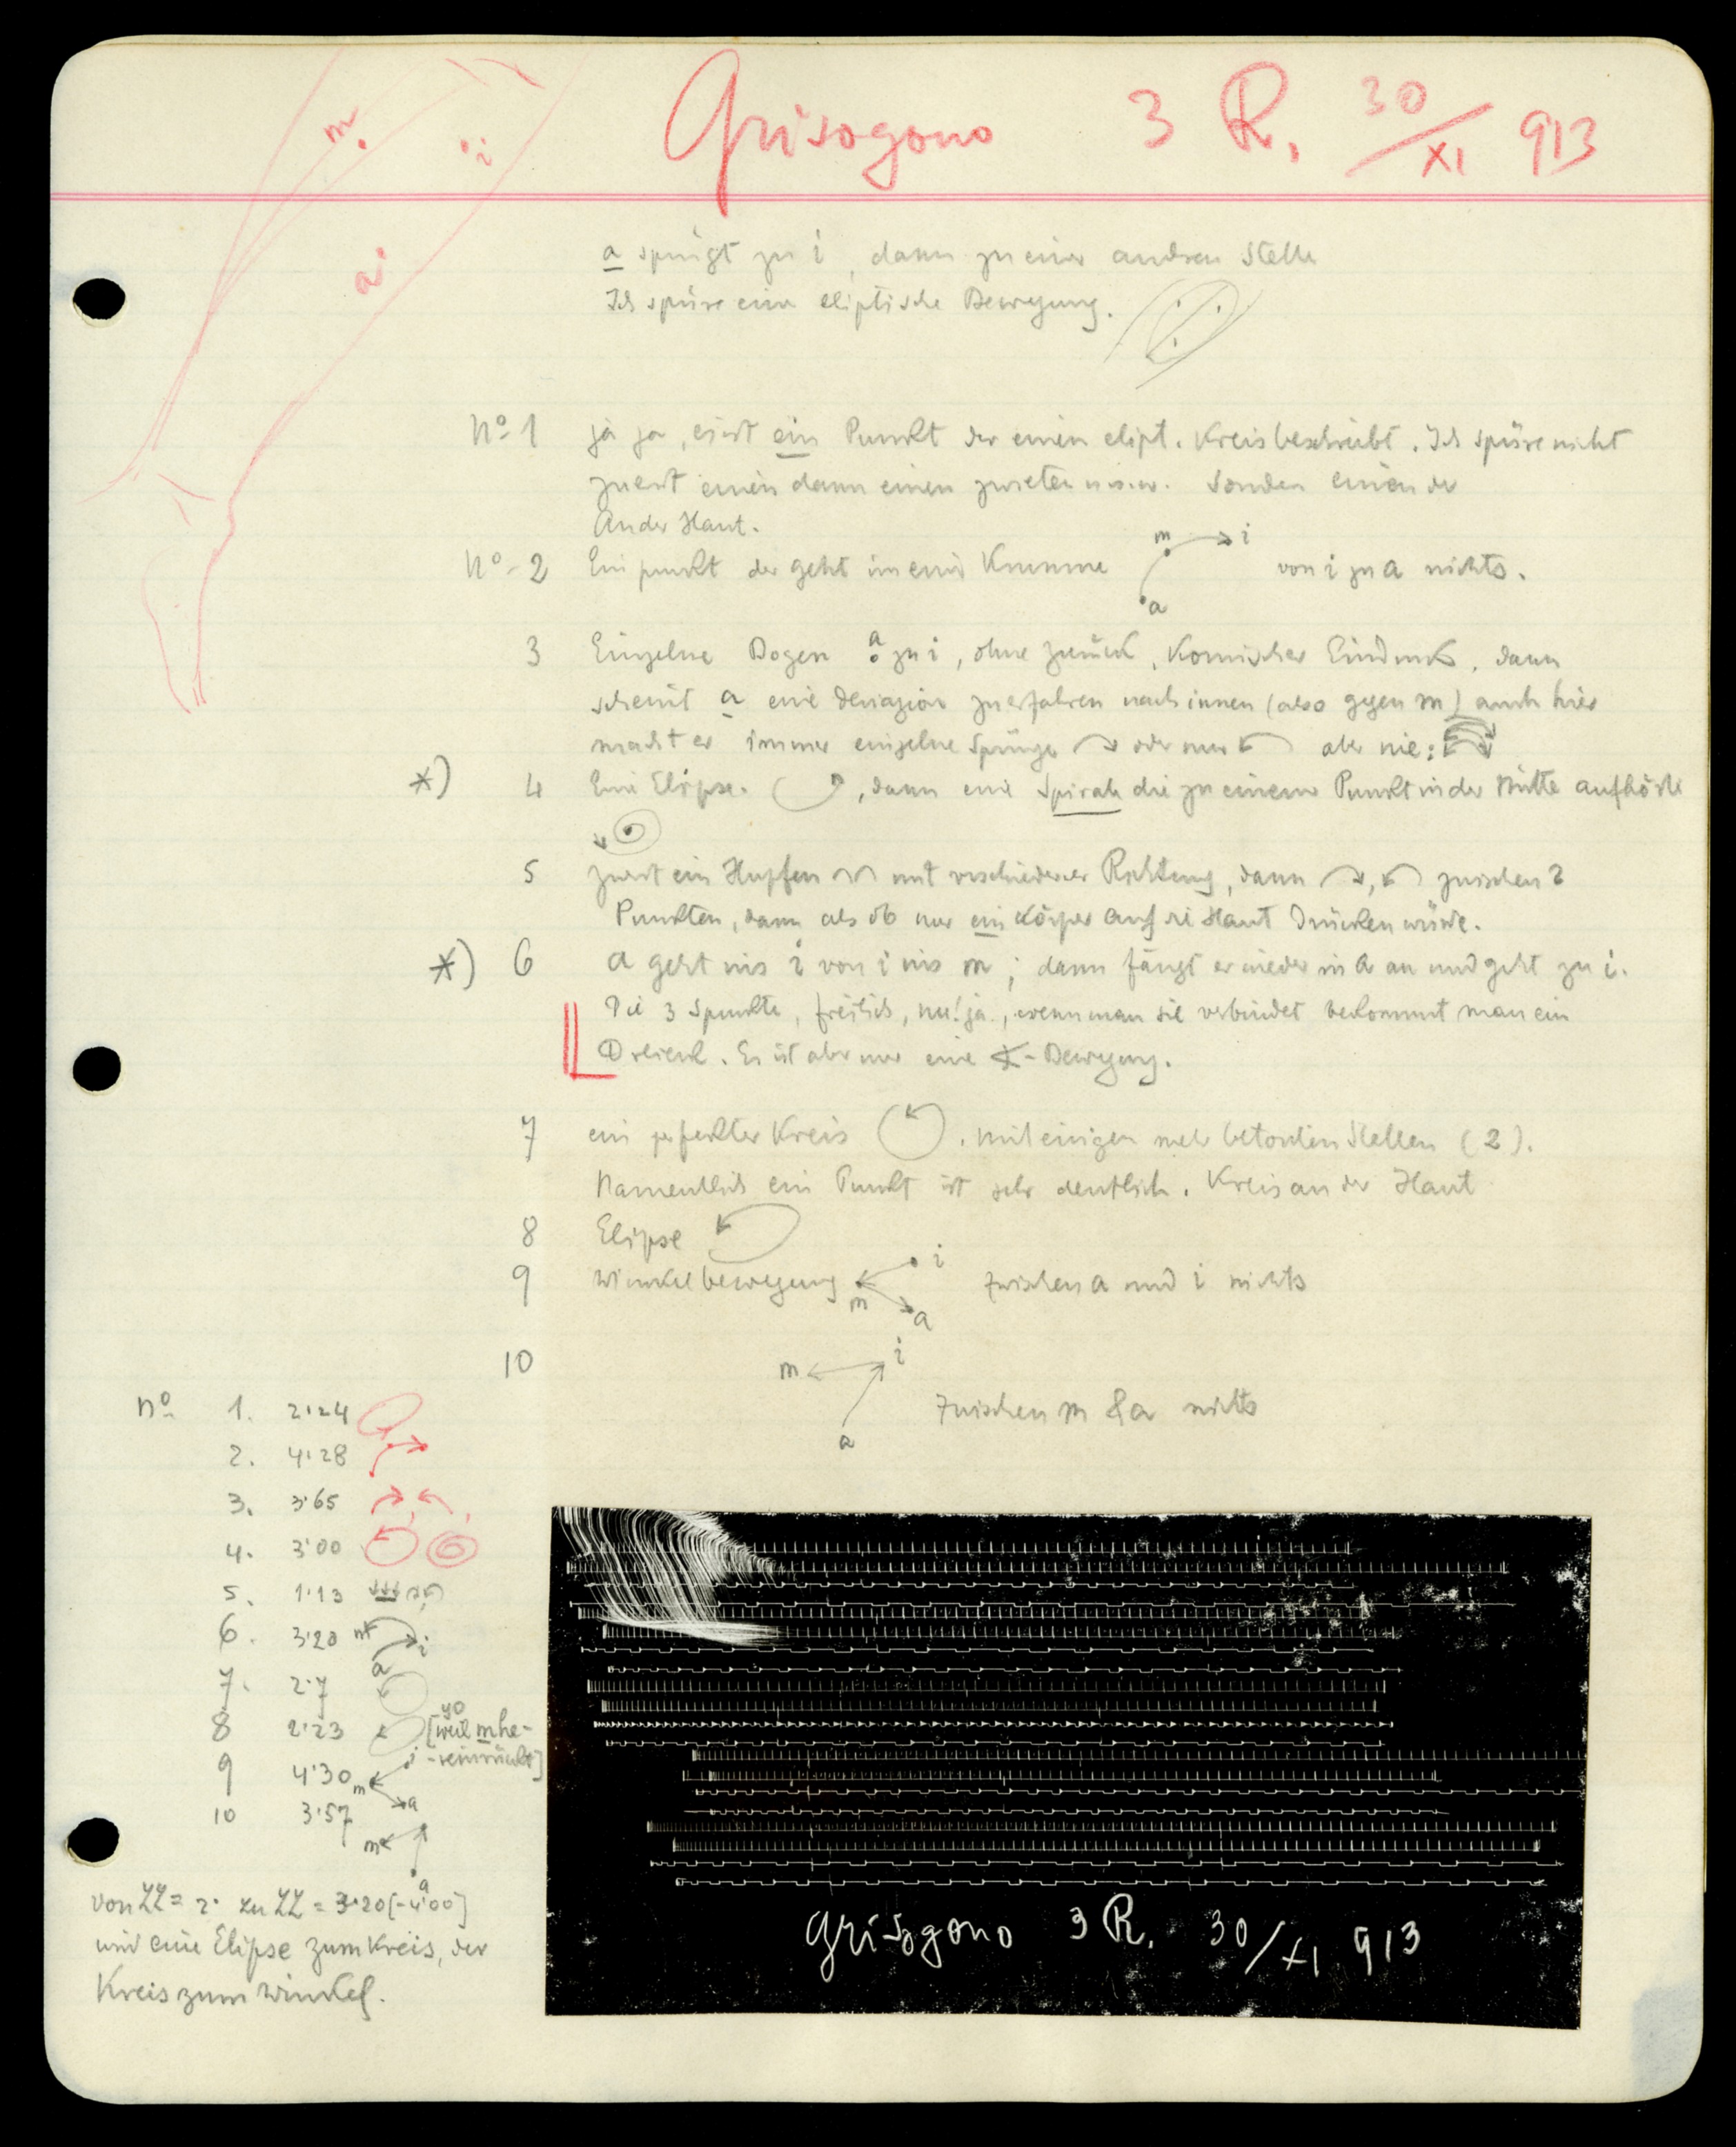 Grisogono 3 R. 30/XI 913
m
i
a
a springt zu i, dann zu einer andren Stelle
Ich spüre eine eliptische Bewegung.
No 1 ja ja, es ist ein Punkt der einen elipt. Kreis beschreibt. Ich spüre nicht
zuerst einen dann einen zweiten u.s.w. sondern einen der
An der Haut.
No 2 Ein punkt der geht in eine Krumme m i a von i zu a nichts.
3 Einzelne Bogen a zu i, ohne zurück, Komischer Eindruck, dann
scheint a eine deviazion zu erfahren nach innen (also gegen m) auch hier
macht er immer einzelne Sprünge oder nur aber nie:
*) 4 Eine Elipse. , dann eine Spirale die zu einem Punkt in der Mitte aufhörte
5 zuerst ein Hupfen mit verschiedener Richtung, dann , zwischen 2
Punkten, dann als ob nur ein Körper auf die Haut drücken würde.
*) 6 a geht bis i von i bis m; dann fängt er wieder in a an und geht zu i.
Die 3 Spunkte, freilich, nu! ja, wenn man sie verbindet bekommt man ein
Dreieck. Es ist aber nur eine ∢-Bewegung.
7 ein perfekter Kreis . mit einigen mehr betonten Stellen (2).
Namentlich ein Punkt ist sehr deutlich. Kreis an der Haut
8 Elipse
9 Winkelbewegung i m a zwischen a und i nichts
10 m i a
zwischen m & a nichts
No 1. 2·24
2. 4·28
3. 3·65
4. 3·00
5. 1·13
6. 3·20 m i a
7. 2·7
8 2·23 [weil m he-
-reinrückt]
9 4·30 m i a
10 3·57 m a
von ZZ = 2· zu ZZ = 3·20 [-4·00]
wird eine Elipse zum Kreis, der
Kreis zum Winkel.
Grisogono 3 R. 30/XI 913